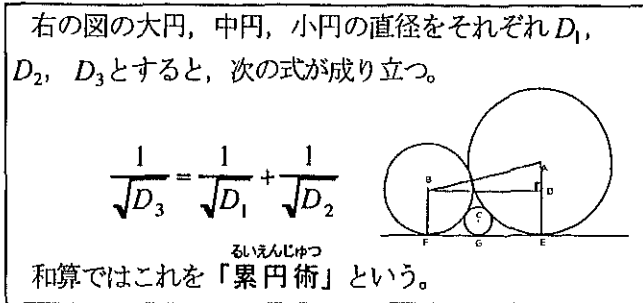 右の図の大円，中円，小円の直径をそれぞれD₁，
D₂，D₃とすると，次の式が成り立つ。
1/√D₃ = 1/√D₁ + 1/√D₂
B
A
D
C
F
G
E
るいえんじゅつ
和算ではこれを「累円術」という。